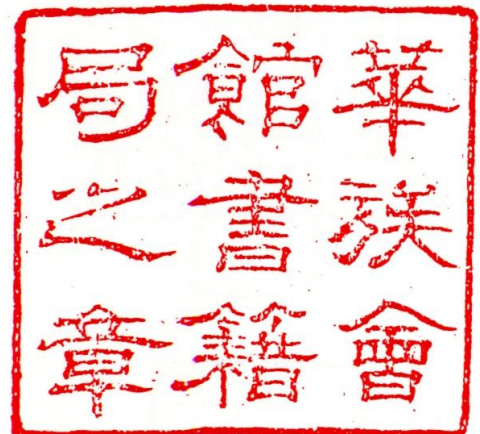 華族會
館書籍
局之章